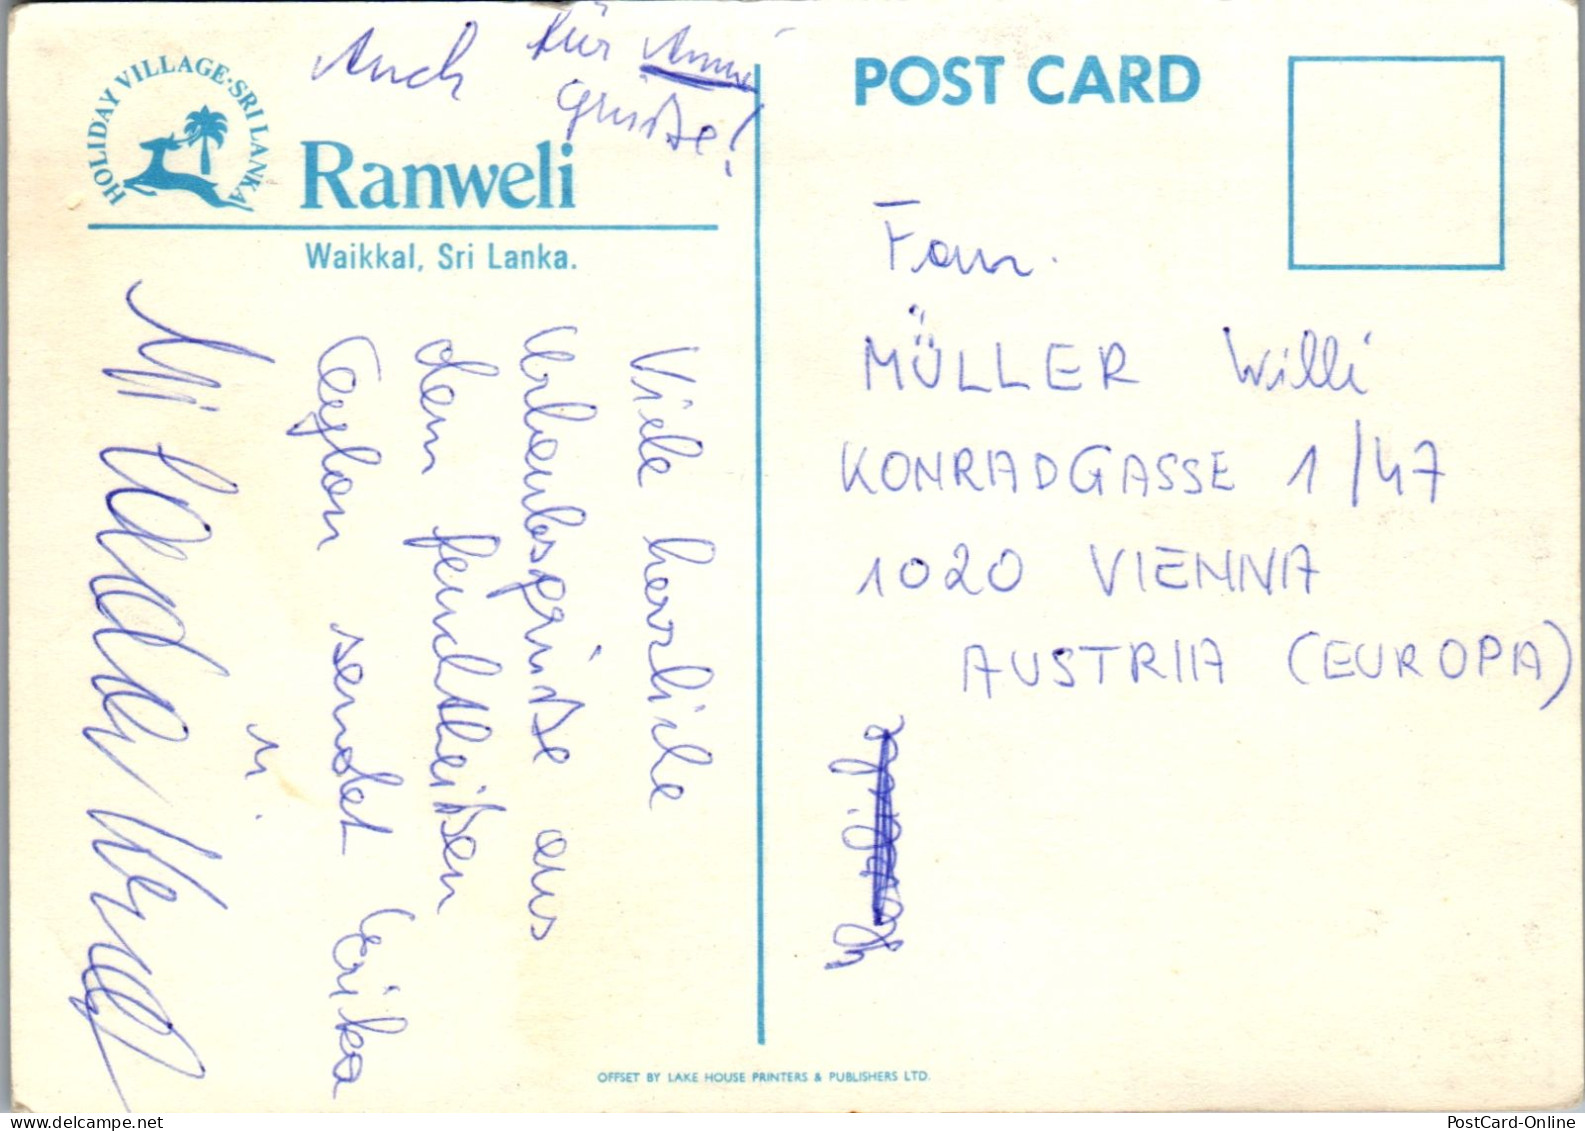 HOLIDAY VILLAGE·SRI LANKA
Ranweli
Waikkal, Sri Lanka.
POST CARD
Auch für Anni
Grüße!
Viele herzliche
Urlaubsgrüße aus
dem feuchtheißen
Ceylon sendet Erika
u.
Fam.
MÜLLER Willi
KONRADGASSE 1/47
1020 VIENNA
AUSTRIA (EUROPA)
OFFSET BY LAKE HOUSE PRINTERS & PUBLISHERS LTD.
PostCard-Online